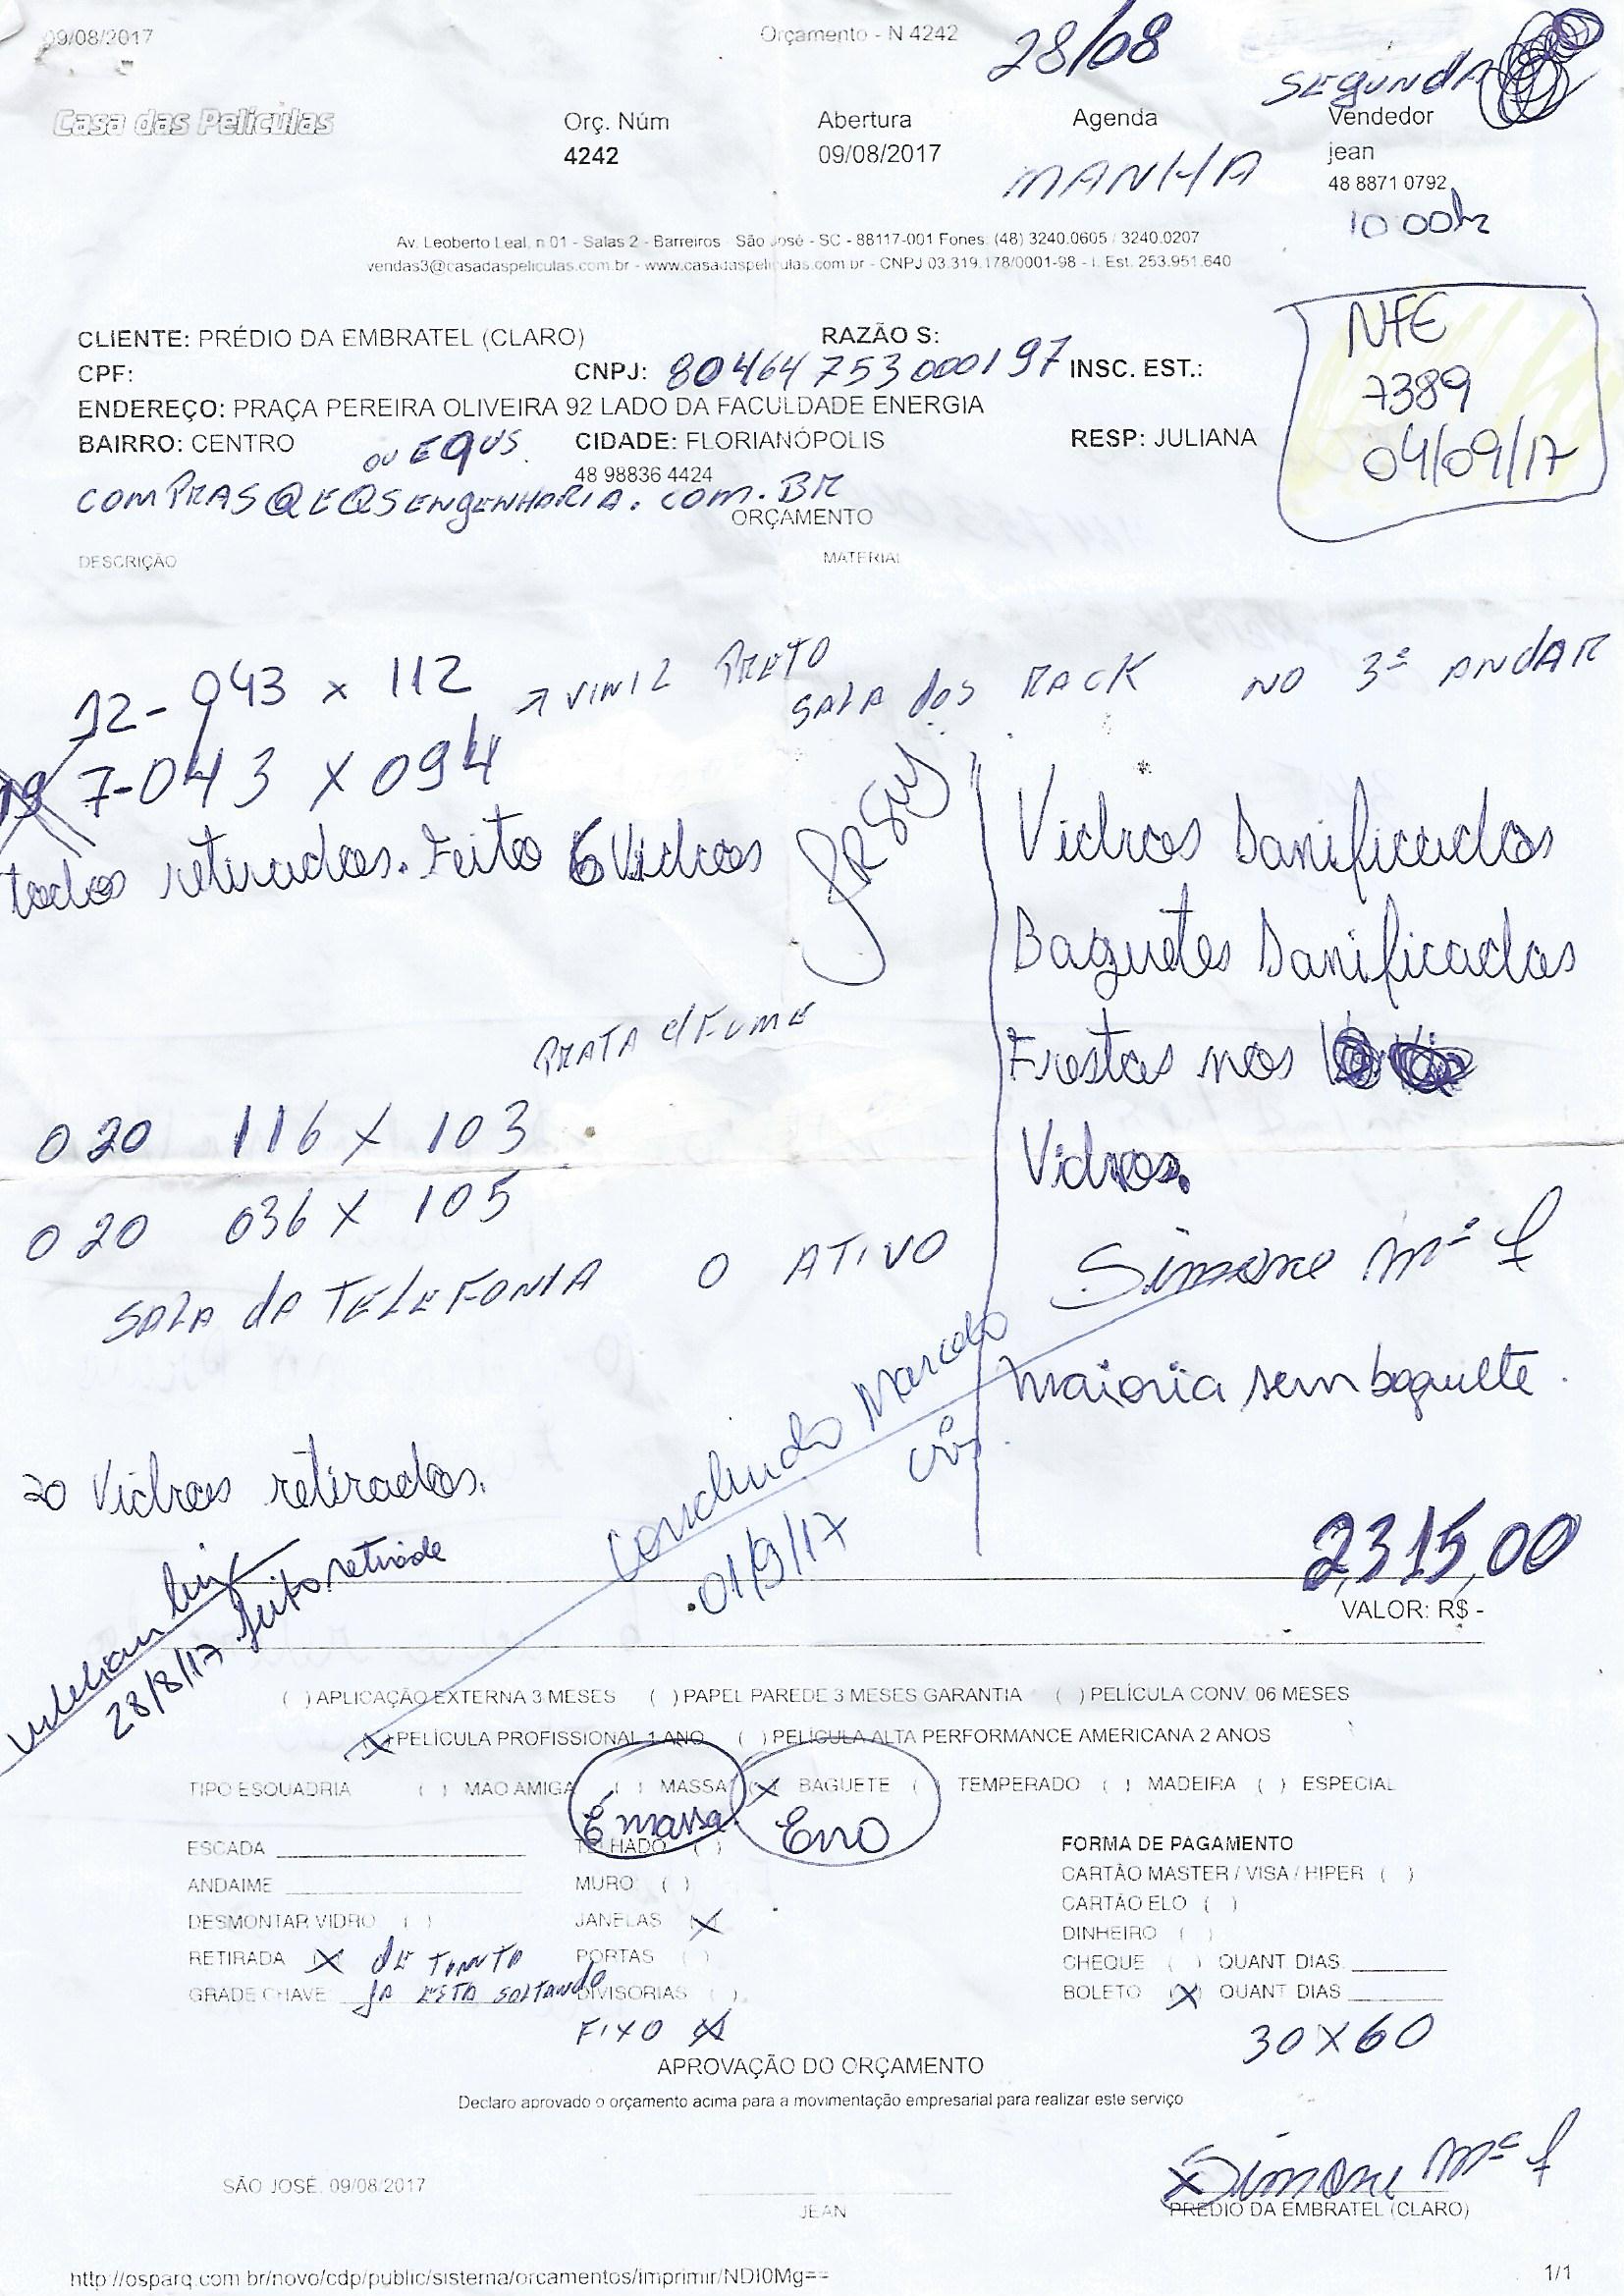 09/08/2017 Orçamento - N 4242
28/08 SEGUNDA
Casa das Películas Orç. Núm Abertura Agenda Vendedor
4242 09/08/2017 MANHA jean
48 8871 0792
10:00hs
Av. Leoberto Leal, n.01 - Salas 2 - Barreiros São José - SC - 88117-001 Fones: (48) 3240.0605 / 3240.0207
vendas3@casadaspeliculas.com.br - www.casadaspeliculas.com.br - CNPJ 03.319.178/0001-98 - I. Est. 253.951.640
NFE
7389
04/09/17
CLIENTE: PRÉDIO DA EMBRATEL (CLARO) RAZÃO S:
CPF: CNPJ: 80464753000197 INSC. EST.:
ENDEREÇO: PRAÇA PEREIRA OLIVEIRA 92 LADO DA FACULDADE ENERGIA
BAIRRO: CENTRO OU EQUS CIDADE: FLORIANÓPOLIS RESP: JULIANA
48 98836 4424
COMPRAS@EQSENGENHARIA.COM.BR
ORÇAMENTO
DESCRIÇÃO MATERIAL
12- 043 x 112 VINIL PRETO
SALA dos RACK NO 3º ANDAR
19 7-043 x 094
todos retirados. Feito 6 Vidros
Vidros Danificados
Baguetes Danificadas
Frestas nos
Vidros.
PRATA c/ FUME
020 116 x 103
020 036 x 105
SALA dA TELEFONIA O ATIVO
Simone Mª
maioria sem baguete.
Concluido Marcelo
01/9/17
20 Vidros retirados.
feito retirada
28/8/17
2,315,00
VALOR: R$ -
( ) APLICAÇÃO EXTERNA 3 MESES ( ) PAPEL PAREDE 3 MESES GARANTIA ( ) PELÍCULA CONV. 06 MESES
(X) PELÍCULA PROFISSIONAL 1 ANO ( ) PELÍCULA ALTA PERFORMANCE AMERICANA 2 ANOS
TIPO ESQUADRIA ( ) MAO AMIGA ( ) MASSA (X) BAGUETE ( ) TEMPERADO ( ) MADEIRA ( ) ESPECIAL
É massa Erro
ESCADA TELHADO ( ) FORMA DE PAGAMENTO
ANDAIME MURO ( ) CARTÃO MASTER / VISA / HIPER ( )
DESMONTAR VIDRO ( ) JANELAS (X) CARTÃO ELO ( )
DINHEIRO ( )
RETIRADA (X) DE TANTO PORTAS ( ) CHEQUE ( ) QUANT DIAS
GRADE CHAVE JA ESTA SOLTANDO DIVISORIAS ( ) BOLETO (X) QUANT DIAS
FIXO X 30 X 60
APROVAÇÃO DO ORÇAMENTO
Declaro aprovado o orçamento acima para a movimentação empresarial para realizar este serviço
Simone Mª
SÃO JOSÉ, 09/08/2017
JEAN PRÉDIO DA EMBRATEL (CLARO)
http://osparq.com.br/novo/cdp/public/sistema/orcamentos/imprimir/NDI0Mg== 1/1